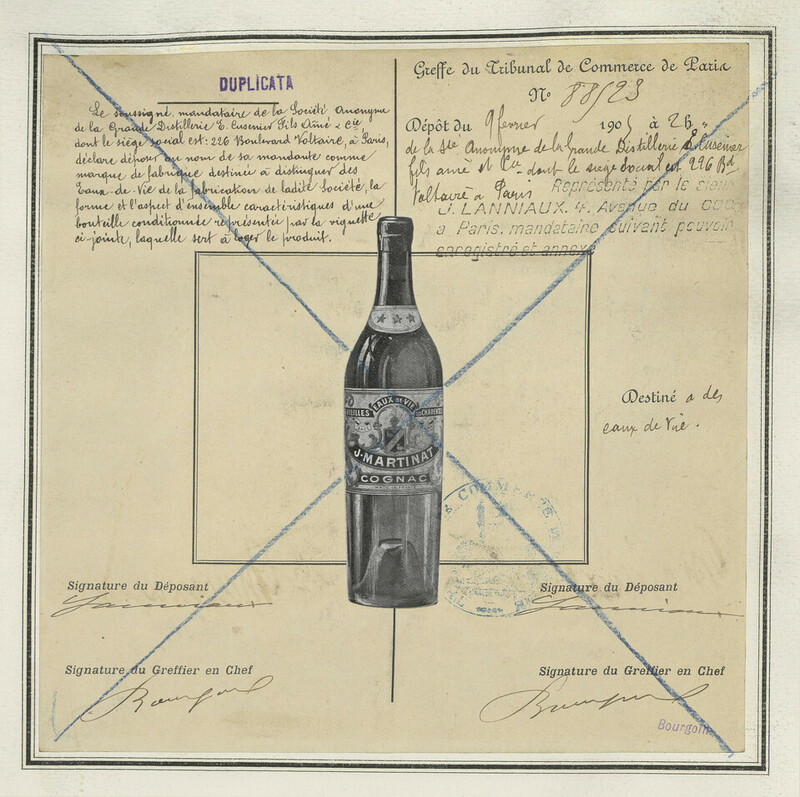 DUPLICATA
Le soussigné, mandataire de la Société Anonyme
de la Grande Distillerie E. Cusenier Fils Aîné & Cie,
dont le siège social est: 226 Boulevard Voltaire, à Paris,
déclare déposer au nom de sa mandante comme
marque de fabrique destinée à distinguer des
Eaux-de-Vie de la fabrication de ladite Société, la
forme et l'aspect d'ensemble caractéristiques d'une
bouteille conditionnée représentée par la vignette
ci-jointe, laquelle sert à loger le produit.
Greffe du Tribunal de Commerce de Paris
No 88523
Dépôt du 9 février 1905 à 2h
de la Sté Anonyme de la Grande Distillerie E. Cusenier
fils aîné et Cie dont le siège social est 226 Bd
Voltaire à Paris Représenté par le sieur
J. LANNIAUX. 4. Avenue du
a Paris. mandataire suivant pouvoir
enregistré et annexé
EAUX DE VIE
VIEILLES DES CHARENTES
J. MARTINAT
COGNAC
Destiné a des
eaux de vie.
COMMERCE
Signature du Déposant
Lanniaux
Signature du Déposant
Lanniaux
Signature du Greffier en Chef
Bourgoin
Signature du Greffier en Chef
Bourgoin
Bourgoin